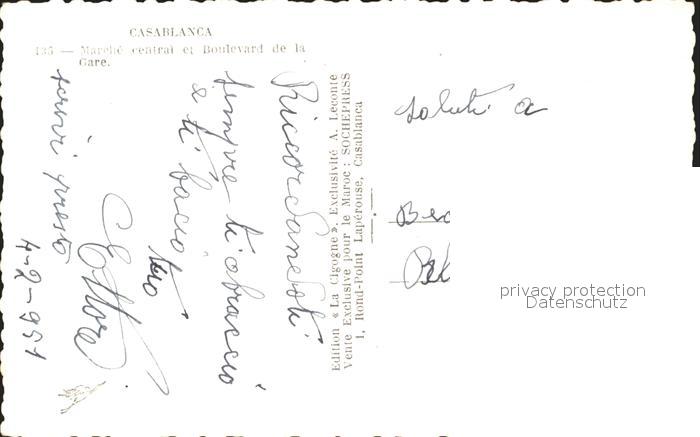 CASABLANCA
135 — Marché central et Boulevard de la
Gare.
Ricordandoti
sempre ti abraccio
e ti bacio
tuo
Ettore
scrivi presto
4-2-951
Edition « La Cigogne ». Exclusivité A. Leconte
Vente Exclusive pour le Maroc : SOCHEPRESS
1, Rond-Point Lapérouse, Casablanca
saluti a
privacy protection
Datenschutz